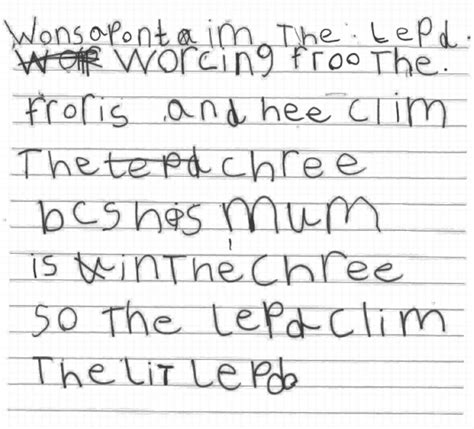 Wonsapont a im The. Lepd.
Worcing froo The.
froris and hee clim
The chree
bcs his mum
is in The Chree
so The Lepd clim
The Lit Lepd